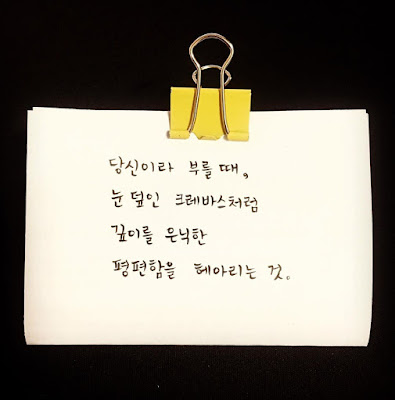 당신이라 부를 때,
눈 덮인 크레바스처럼
깊이를 은닉한
평편함을 헤아리는 것.